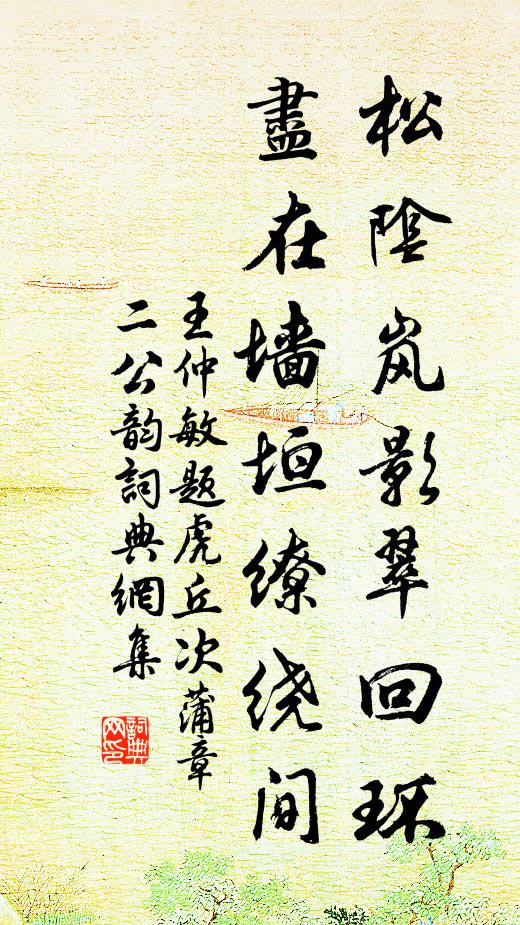 松陰岚影翠回环
盡在墙垣缭绕间
王仲敏题虎丘次蒲章
二公韵詞典網集
詞典
网印